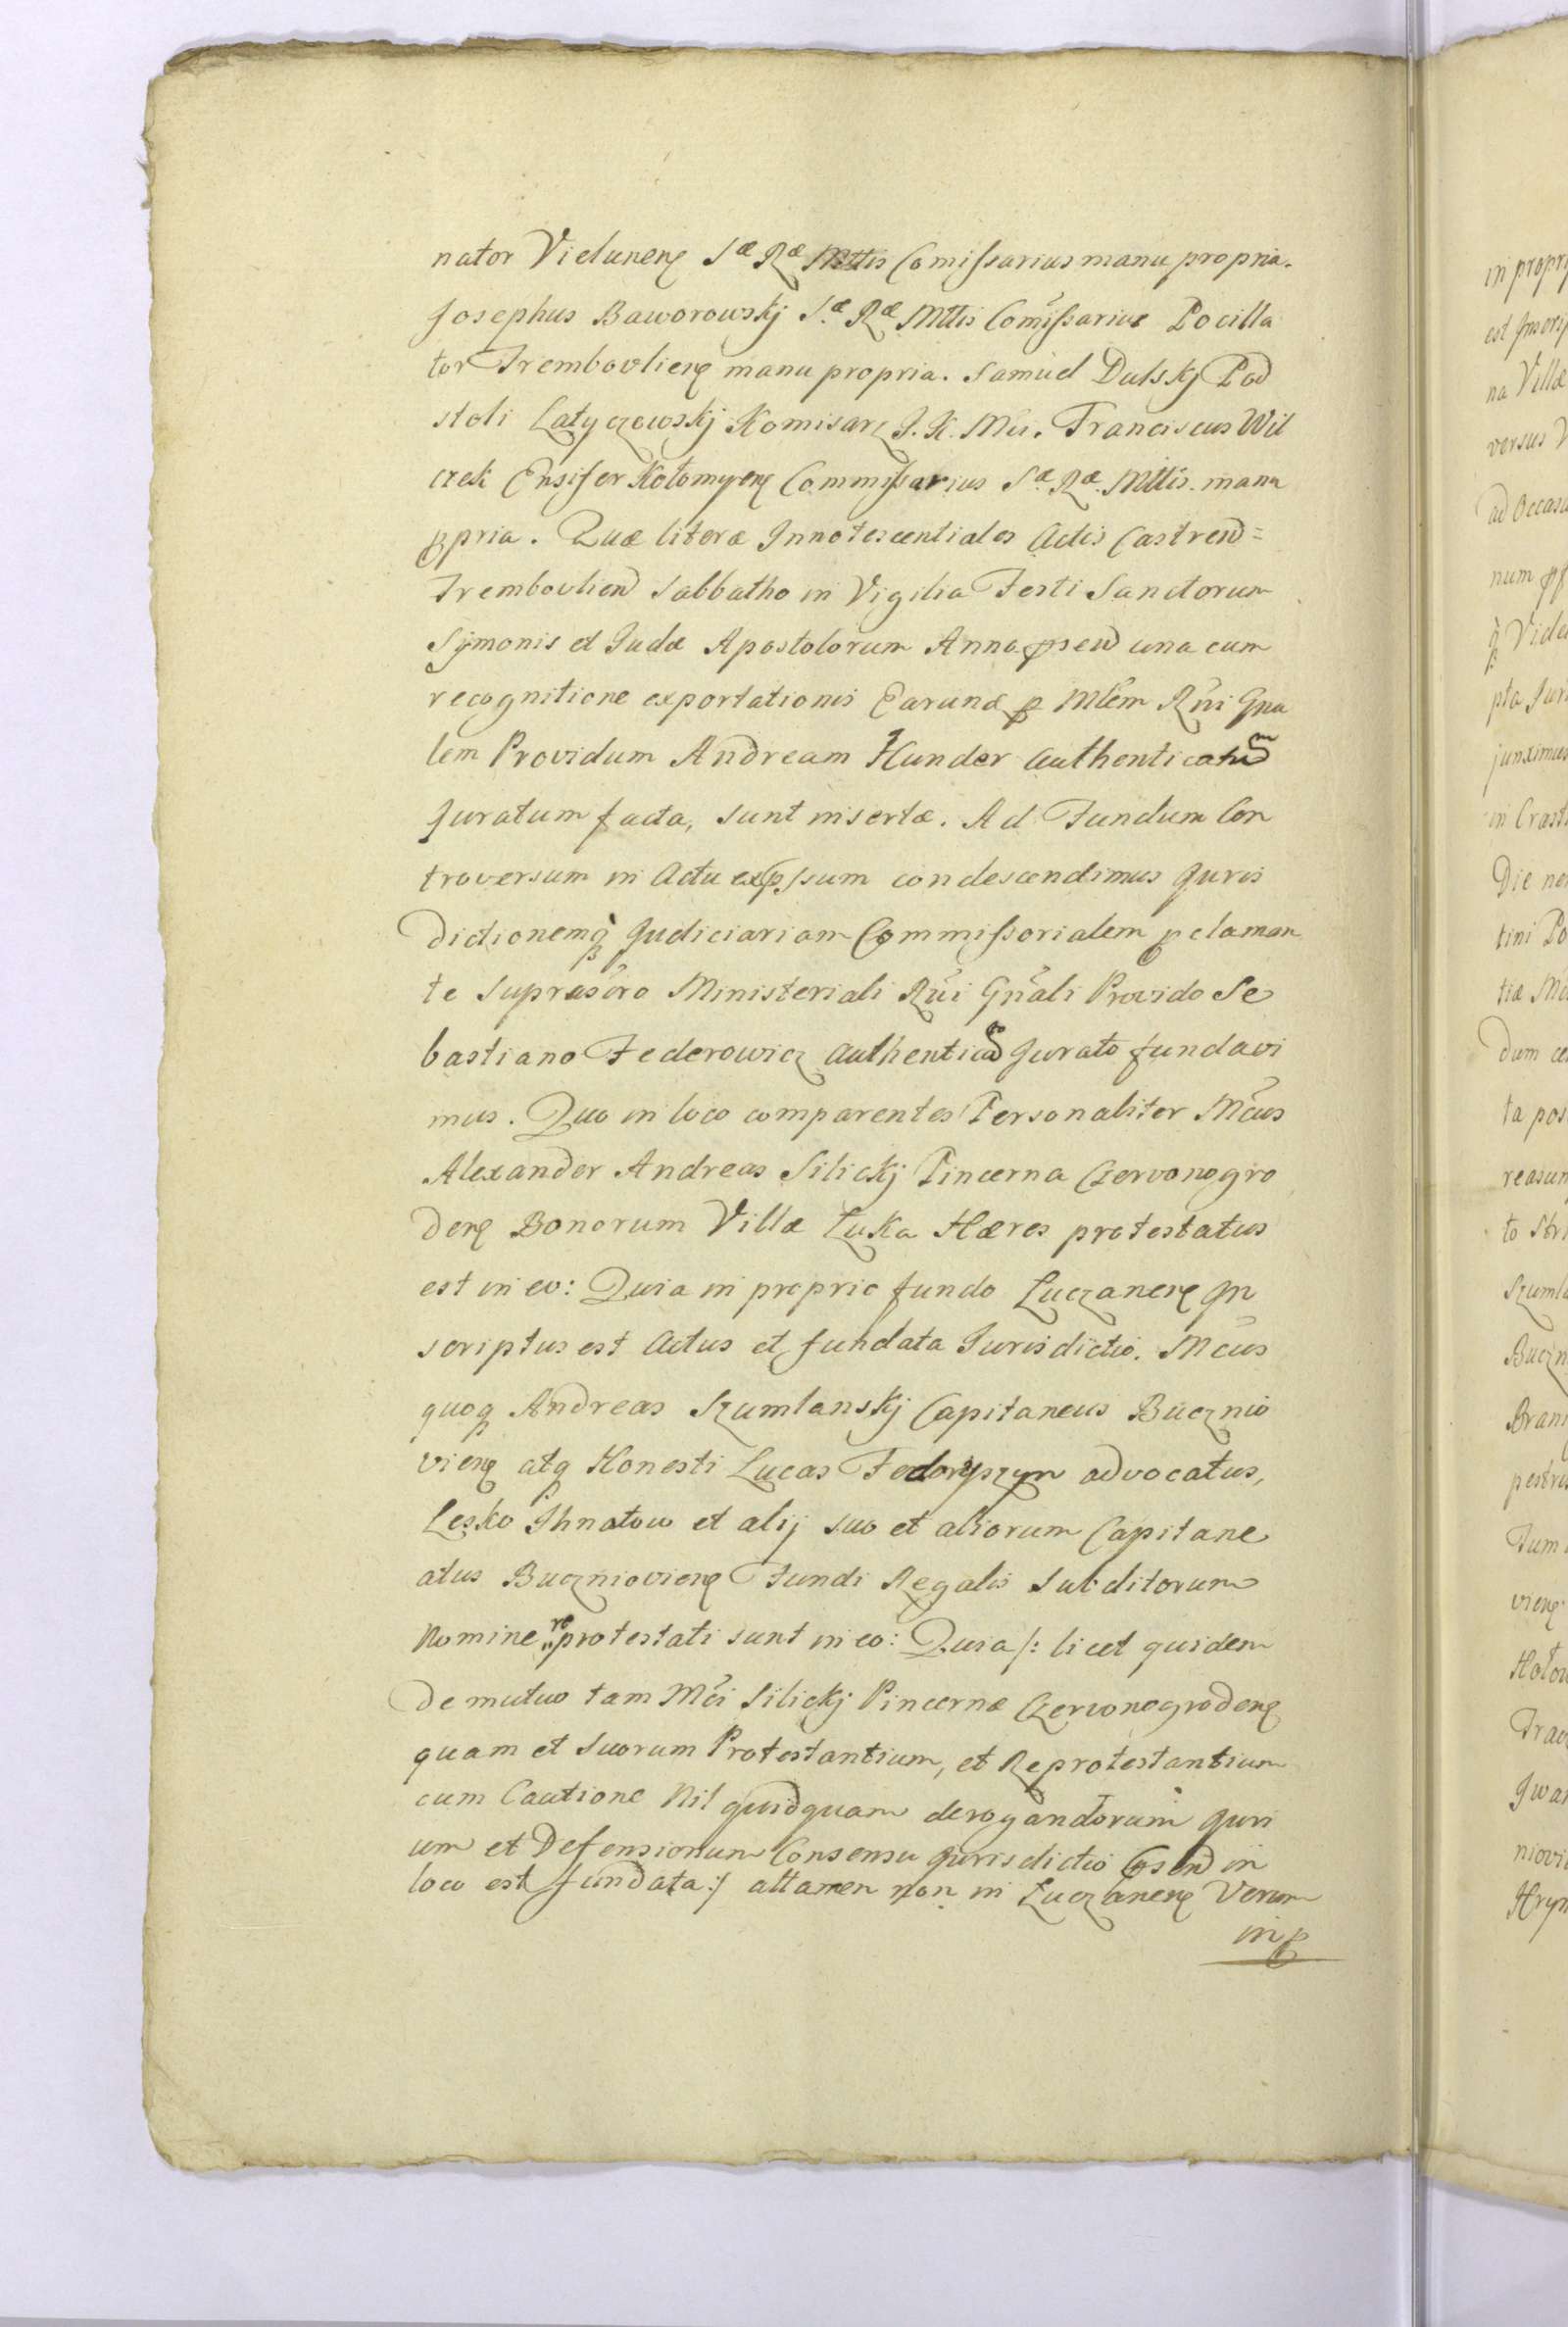 nator Vielunenȩ Sæ Ræ Mttis Comissarius manu propria.
Josephus Baworowskj S.æ Ræ Mttis Com̃issarius Pocilla
tor Trembovlienȩ manu propria. Samuel Dulskj Pod
stoli Latyczewskj Komisarz J. K. Mci. Franciscus Wil
czek Ensifer Kołomyenȩ Commissarius S.æ Ræ. Mttis. manu
ppria. Quæ literæ Innotescentiales Actis Castren̄=
Trembovlien̄ Sabbatho in Vigilia Festi Sanctorum
Symonis et Judæ Apostolorum Anno psen̄ una cum
recognitione exportationis Earund p Mlem Rñi Gna
lem Providum Andream Hunder Authenticatum
Juratum facta, sunt insertæ. Ad Fundum Con
troversum in Actu expssum condescendimus Juris
dictionemq̀ Judiciariam Commissorialem pclaman
te suprascro Ministeriali Rñi Gñali Provido Se
bastiano Federowicz Authentico Jurato fundavi
mus. Quo in loco comparentes Personaliter Mcus
Alexander Andreas Silickj Pincerna Czervonogro
denȩ Bonorum Villæ Łuka Hæres protestatus
est in eo: Quia in proprio fundo Łuczanenȩ In
scriptus est Actus et fundata Jurisdictio. Mcus
quoq Andreas Szumlanskj Capitaneus Bucznio
vienȩ atq Honesti Lucas Fedoryszyn advocatus,
Lesko Ihnatow et alij suo et aliorum Capitane
atus Buczniovienȩ Fundi Regalis Subditorum
Nomine reprotestati sunt in eo: Quia /: licet quidem
de mutuo tam Mci Silickj Pincernæ Czervonogrodenȩ
quam et Suorum Protestantium, et Reprotestantium
cum Cautione Nil quidquam derogandorum Juri
um et Defensionum Consensu Jurisdictio psen̄ in
loco est fundata :/ attamen non in Łuczanenȩ Verum
in p
in propr
est Inscrip
na Villæ
versus
ad Occasu
num
Vidu
pta Juri
junximus
in Crasti
Die no
tini Po
tiæ
Dum
ta pos
reasum
to
Szumla
Buczn
Bran
pestris
Tum
vienȩ
Hołow
Trac
Iwan
niovi
Hryn